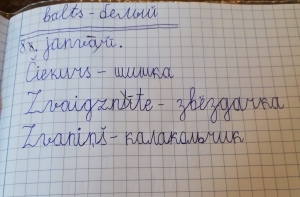 balts - белый
janvāri.
Čiekurs - шишка
Zvaigznīte - звёздачка
Zvaniņš - калакольчик